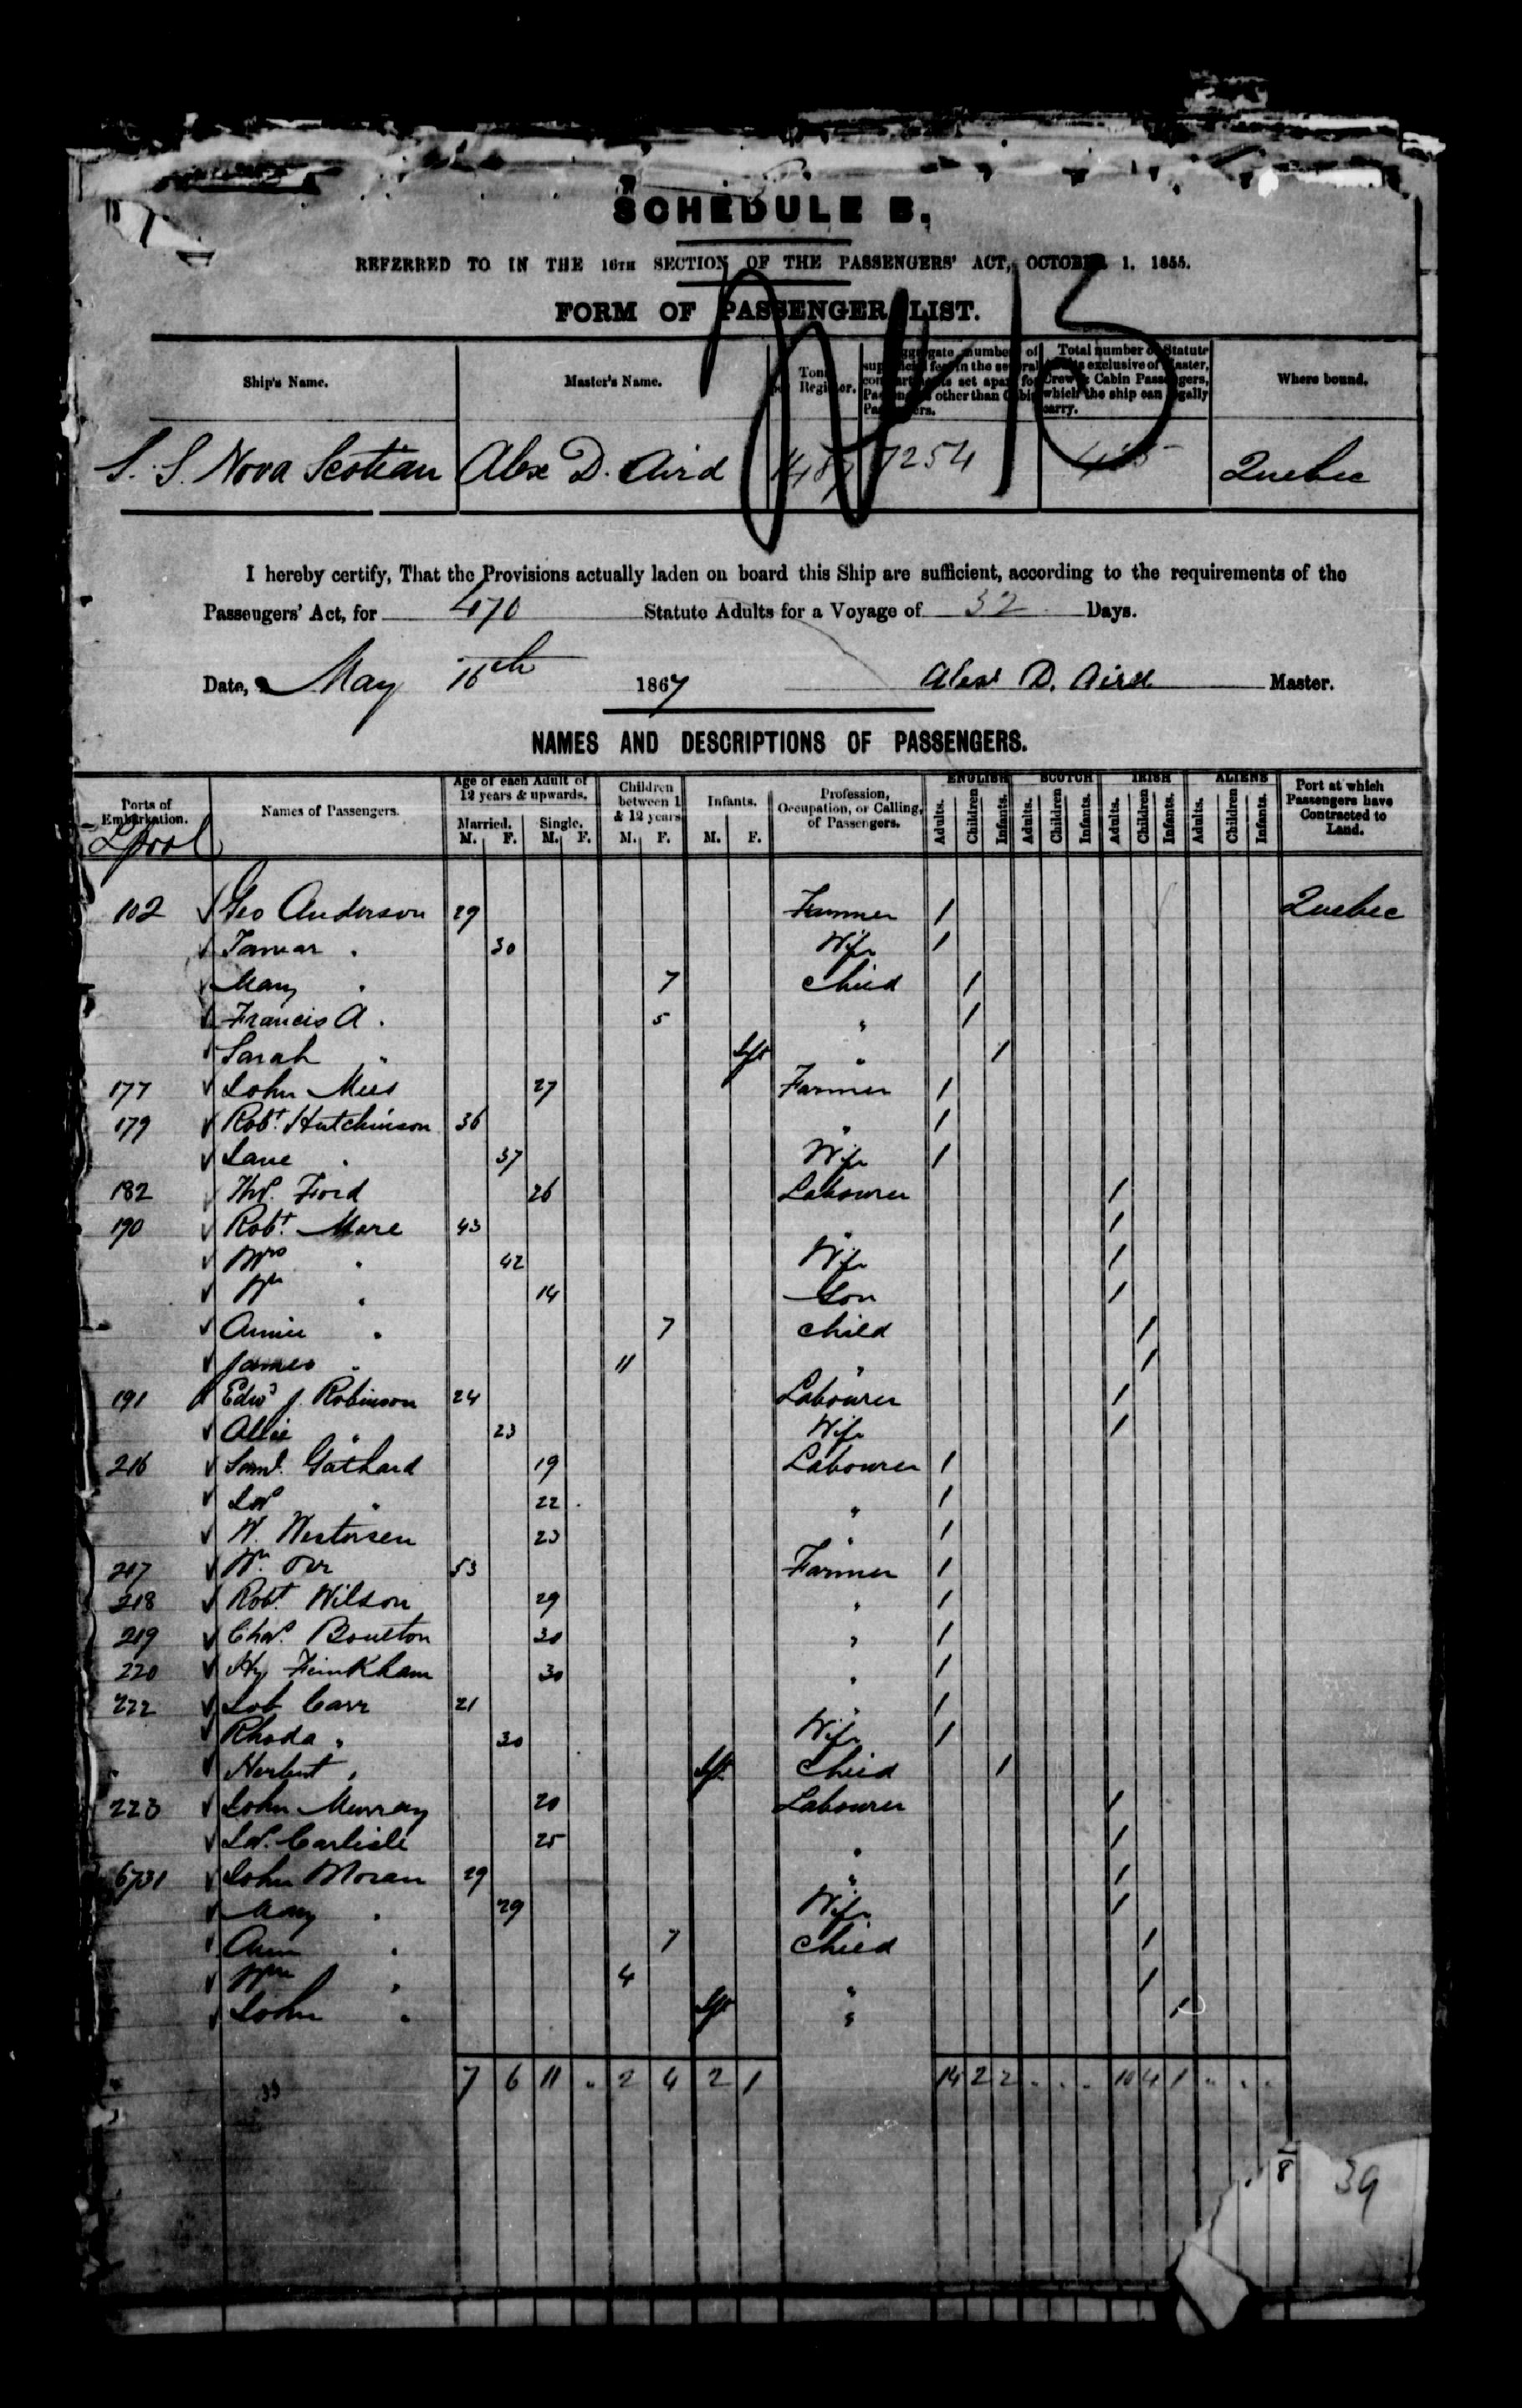 SCHEDULE B.
REFERRED TO IN THE 16TH SECTION OF THE PASSENGERS' ACT, OCTOBER 1, 1855.
FORM OF PASSENGER LIST.
No 15
Ship's Name. Master's Name. Tons per Register. Aggregate number of superficial feet in the several compartments set apart for Passengers other than Cabin Passengers. Total number of Statute Adults exclusive of Master, Crew & Cabin Passengers, which the ship can legally carry. Where bound.
S. S. Nova Scotian Alex D. Aird 1487 7254 Quebec
I hereby certify, That the Provisions actually laden on board this Ship are sufficient, according to the requirements of the
Passengers' Act, for 470 Statute Adults for a Voyage of 32 Days.
Date, May 16th 1867 Alex D. Aird Master.
NAMES AND DESCRIPTIONS OF PASSENGERS.
Ports of Embarkation. Names of Passengers. Age of each Adult of 12 years & upwards. Children between 1 & 12 years Infants. Profession, Occupation, or Calling, of Passengers. ENGLISH SCOTCH IRISH ALIENS Port at which Passengers have Contracted to Land.
Married. Single.
M. F. M. F. M. F. M. F. Adults. Children Infants. Adults. Children Infants. Adults. Children Infants. Adults. Children Infants.
Lpool
102 Geo Anderson 29 Farmer 1 Quebec
Tamar " 30 Wife 1
Mary " 7 Child 1
Francis A " 5 " 1
Sarah " Inft " 1
177 John Mees 27 Farmer 1
179 Robt. Hutchinson 36 " 1
Jane " 37 Wife 1
182 Thos. Ford 26 Labourer 1
190 Robt. Mare 43 " 1
Mrs " 42 Wife 1
Wm " 14 Son 1
Annie " 7 Child 1
James " 11 " 1
191 Edwd J. Robinson 24 Labourer 1
Allie " 23 Wife 1
216 Saml. Gathard 19 Labourer 1
Jos " 22 " 1
W. Westorsen 23 " 1
217 Wm. Orr 53 Farmer 1
218 Robt. Wilson 29 " 1
219 Chas. Boulton 30 " 1
220 Hy 30 " 1
222 Job Carr 21 " 1
Rhoda " 30 Wife 1
Herbert " Inft Child 1
223 John Murray 20 Labourer 1
Jas. Carlisle 25 " 1
6731 John Moran 29 " 1
Mary " 29 Wife 1
Ann " 7 Child 1
Wm " 4 " 1
John " Inft " 1
7 6 11 . 2 4 2 1 14 2 2 . . . 10 4 1 . . .
33
8 39